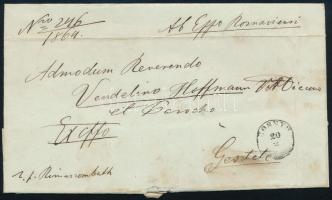 Nro 246 / 1864. Ab Eppo Rosnaviensi
Admodum Reverendo
Vendelino Hoffmann
et Parocho
Ex offo
Gesztete
r. f. Rimaszombath
20